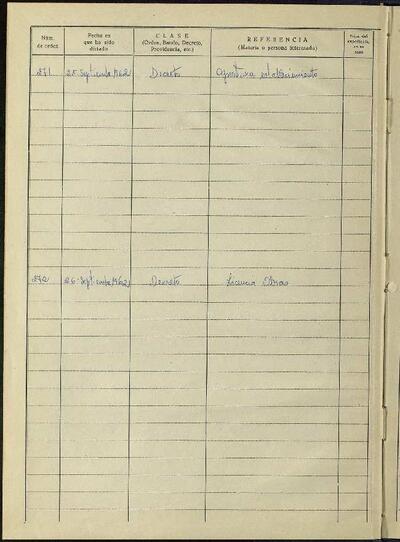 Núm. de orden
Fecha en que ha sido dictado
CLASE
(Orden, Bando, Decreto, Providencia, etc.)
REFERENCIA
(Materia o persona interesada)
Núm. del expediente, en su caso
271 25 Septiembre 1962 Decreto Apertura establecimiento
272 26 Septiembre 1962 Decreto Licencia Obras